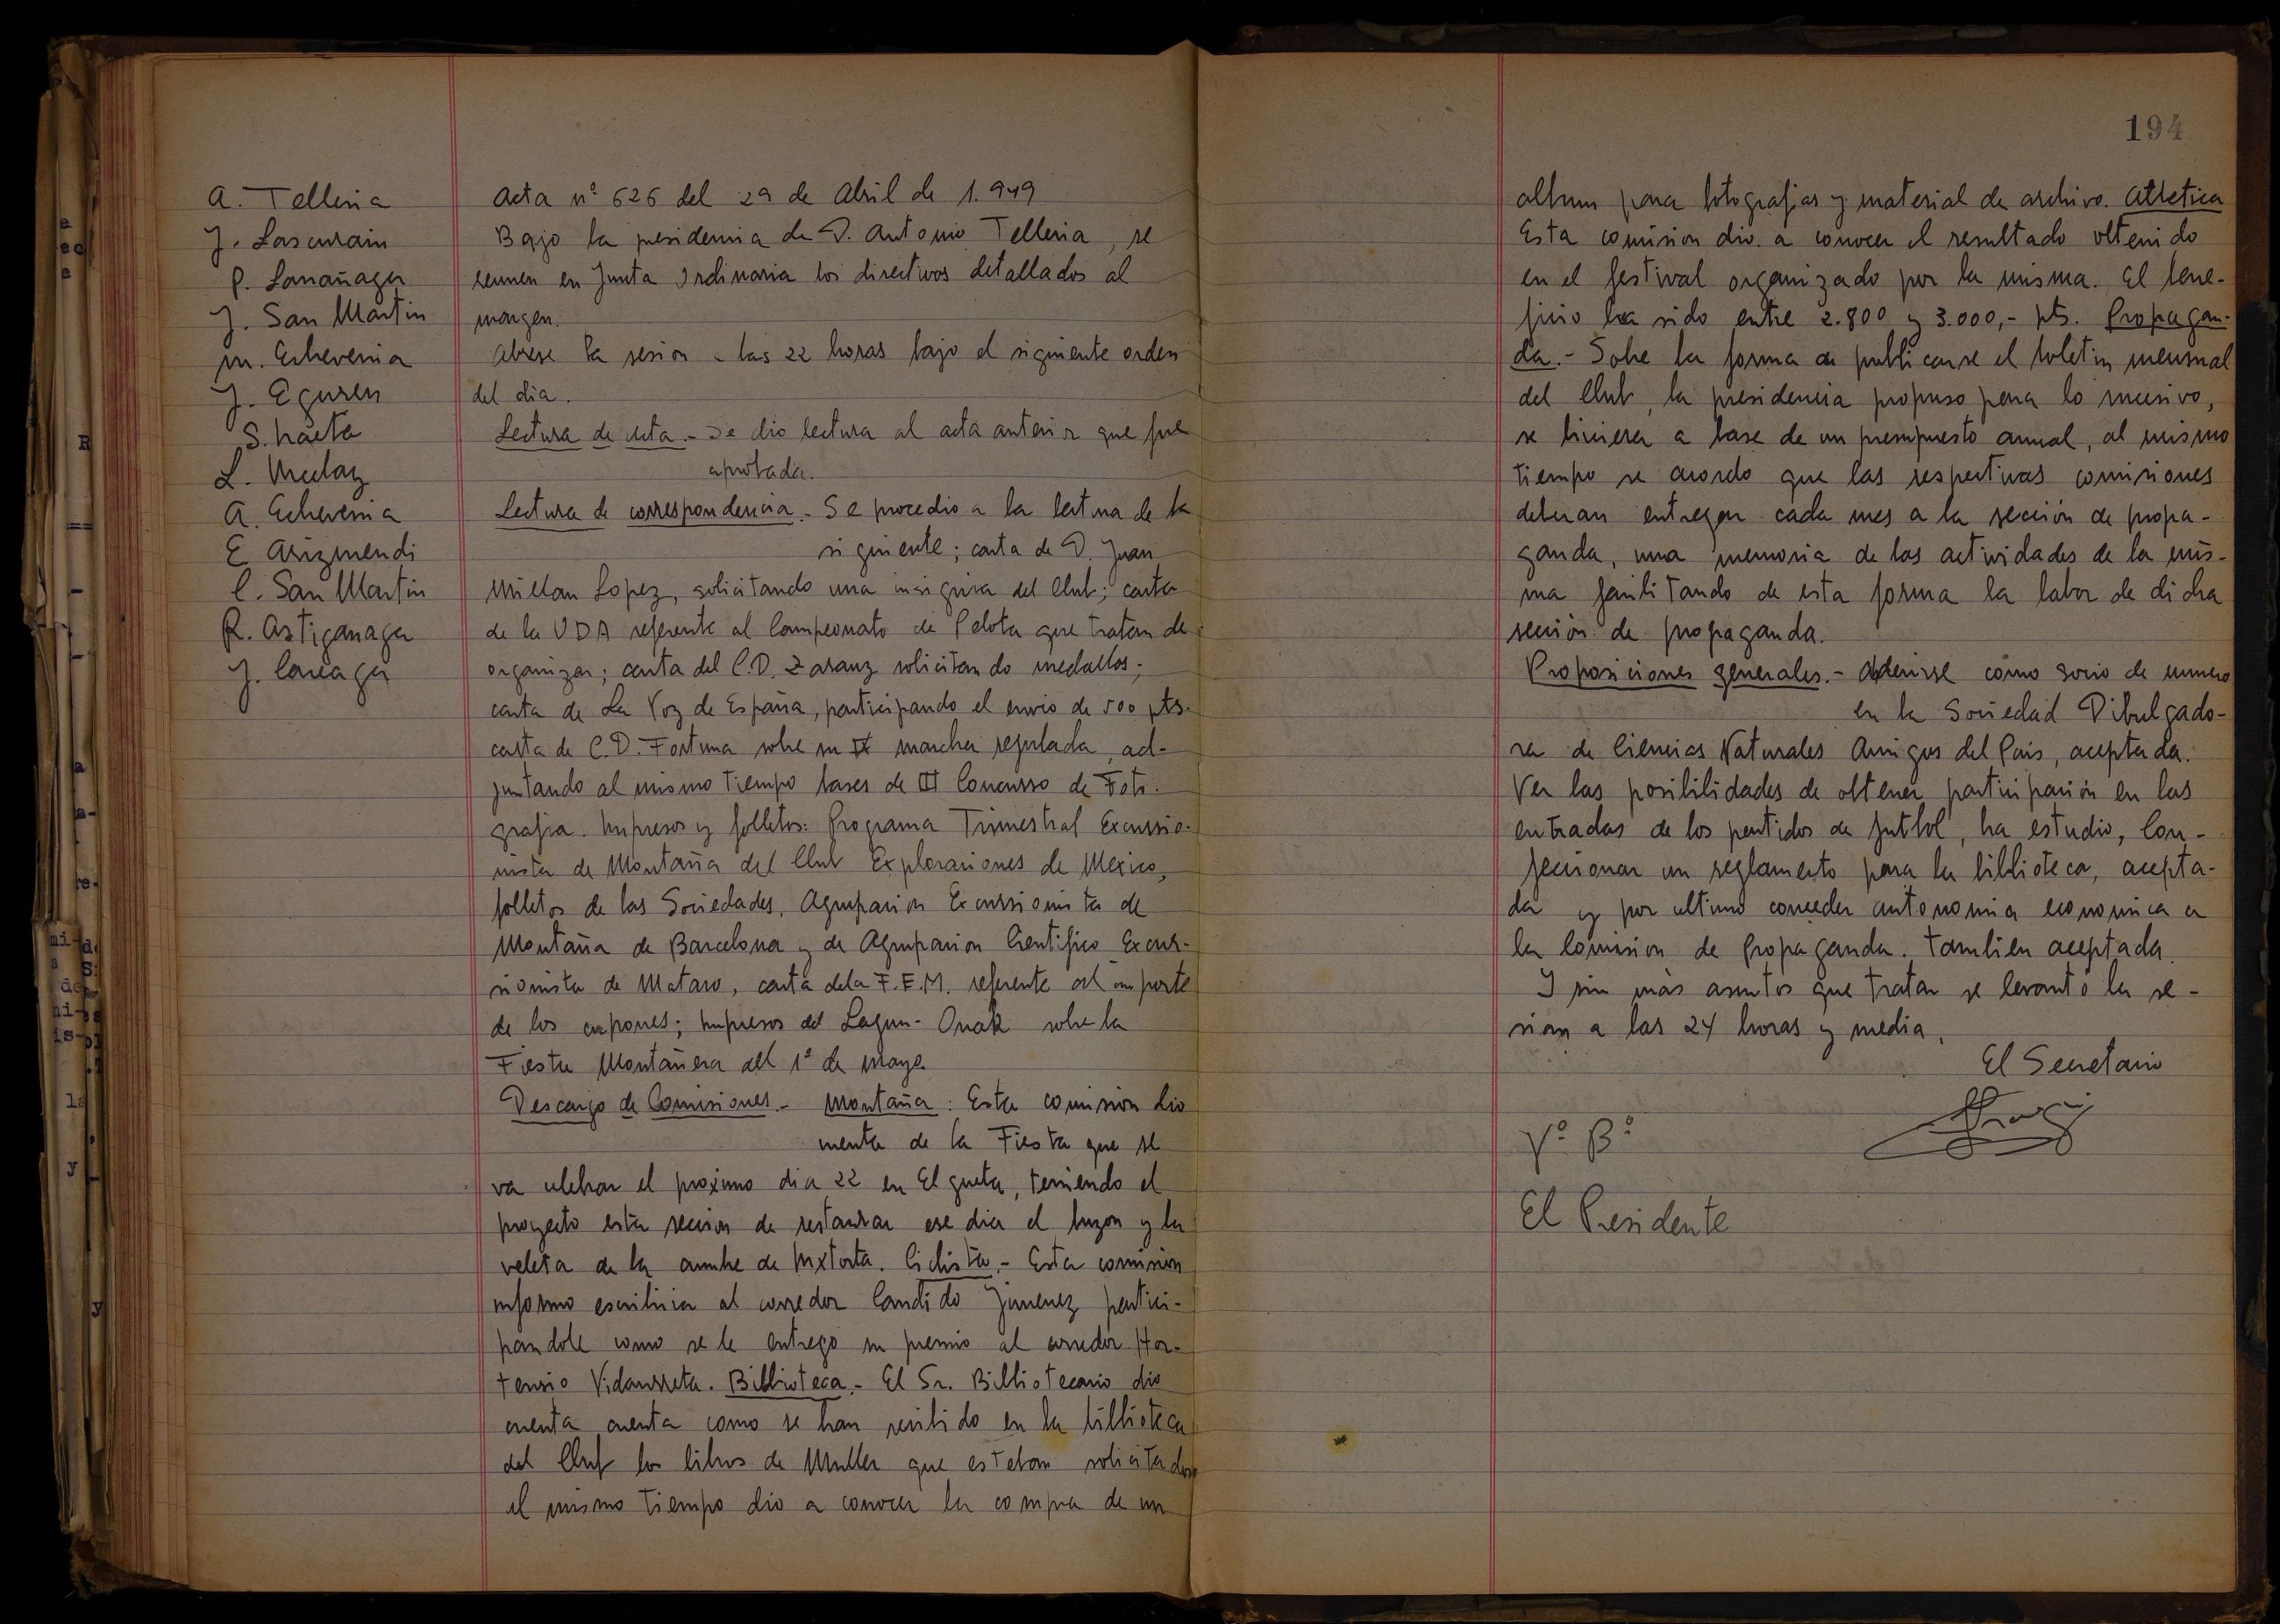 194
A. Telleria
J. Lascurain
P. Larrañaga
J. San Martin
M. Echeverria
J. Eguren
S. Iraeta
L.
A. Echeverria
E. Arizmendi
C. San Martin
R. Astigarraga
J. Careaga
Acta nº 626 del 29 de Abril de 1.949
Bajo la presidencia de D. Antonio Telleria, se
reunen en Junta Ordinaria los directivos detallados al
margen.
Abrese la sesion a las 22 horas bajo el siguiente orden
del dia.
Lectura de acta.- Se dio lectura al acta anterior que fue
aprobada.
Lectura de correspondencia.- Se procedio a la lectura de la
siguiente; carta de D. Juan
Millan Lopez, solicitando una insignia del Club; carta
de la UDA referente al Campeonato de Pelota que tratan de
organizar; carta del C.D. Zarauz solicitando medallas;
carta de La Voz de España, participando el envio de 500 pts.
carta de C.D. Fortuna sobre su IX marcha regulada, ad-
juntando al mismo tiempo bases de III Concurso de Foto-
grafia. Impresos y folletos: Programa Trimestral Excursio-
nista de Montaña del Club Exploraciones de Mexico,
folletos de las Sociedades, Agrupacion Excursionista de
Montaña de Barcelona y de Agrupacion Cientifico Excur-
sionista de Mataro, carta de la F.E.M. referente al importe
de los cupones; Impresos del Lagun-Onak sobre la
Fiesta Montañera del 1º de Mayo.
Descargo de Comisiones.- Montaña: Esta comision dio
cuenta de la Fiesta que se
va celebrar el proximo dia 22 en Elgueta, teniendo el
proyecto esta seccion de restaurar ese dia el buzon y la
veleta de la cumbre de Intxorta. Ciclista.- Esta comision
informo escribiria al corredor Candido Jimenez partici-
pandole como se le entrego su premio al corredor Hor-
tensio Vidaurreta. Biblioteca.- El Sr. Bibliotecario dio
cuenta cuenta como se han recibido en la biblioteca
del Club los libros de Muller que estaban solicitados
al mismo tiempo dio a conocer la compra de un
album para fotografias y material de archivo. Atletica
Esta comision dio a conocer el resultado obtenido
en el festival organizado por la misma. El bene-
ficio ha sido entre 2.800 y 3.000,- pts. Propagan-
da.- Sobre la forma de publicarse el boletin mensual
del Club, la presidencia propuso para lo sucesivo,
se hiciera a base de un presupuesto anual, al mismo
tiempo se acordo que las respectivas comisiones
deberan entregar cada mes a la sección de propa-
ganda, una memoria de las actividades de la mis-
ma facilitando de esta forma la labor de dicha
sección de propaganda.
Proposiciones generales.- Adherirse como socio de numero
en la Sociedad Dibulgado-
ra de Ciencias Naturales Amigos del Pais, aceptada.
Ver las posibilidades de obtener participación en las
entradas de los partidos de futbol, ha estudio, Con-
feccionar un reglamento para la biblioteca, acepta-
da y por ultimo conceder autonomia economica a
la Comision de Propaganda. Tambien aceptada.
Y sin más asuntos que tratar se levantó la se-
sion a las 24 horas y media.
El Secretario
Vº Bº
El Presidente